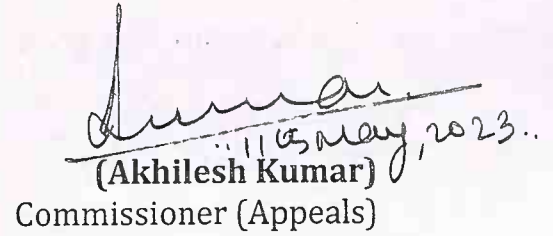 May, 2023..
(Akhilesh Kumar)
Commissioner (Appeals)